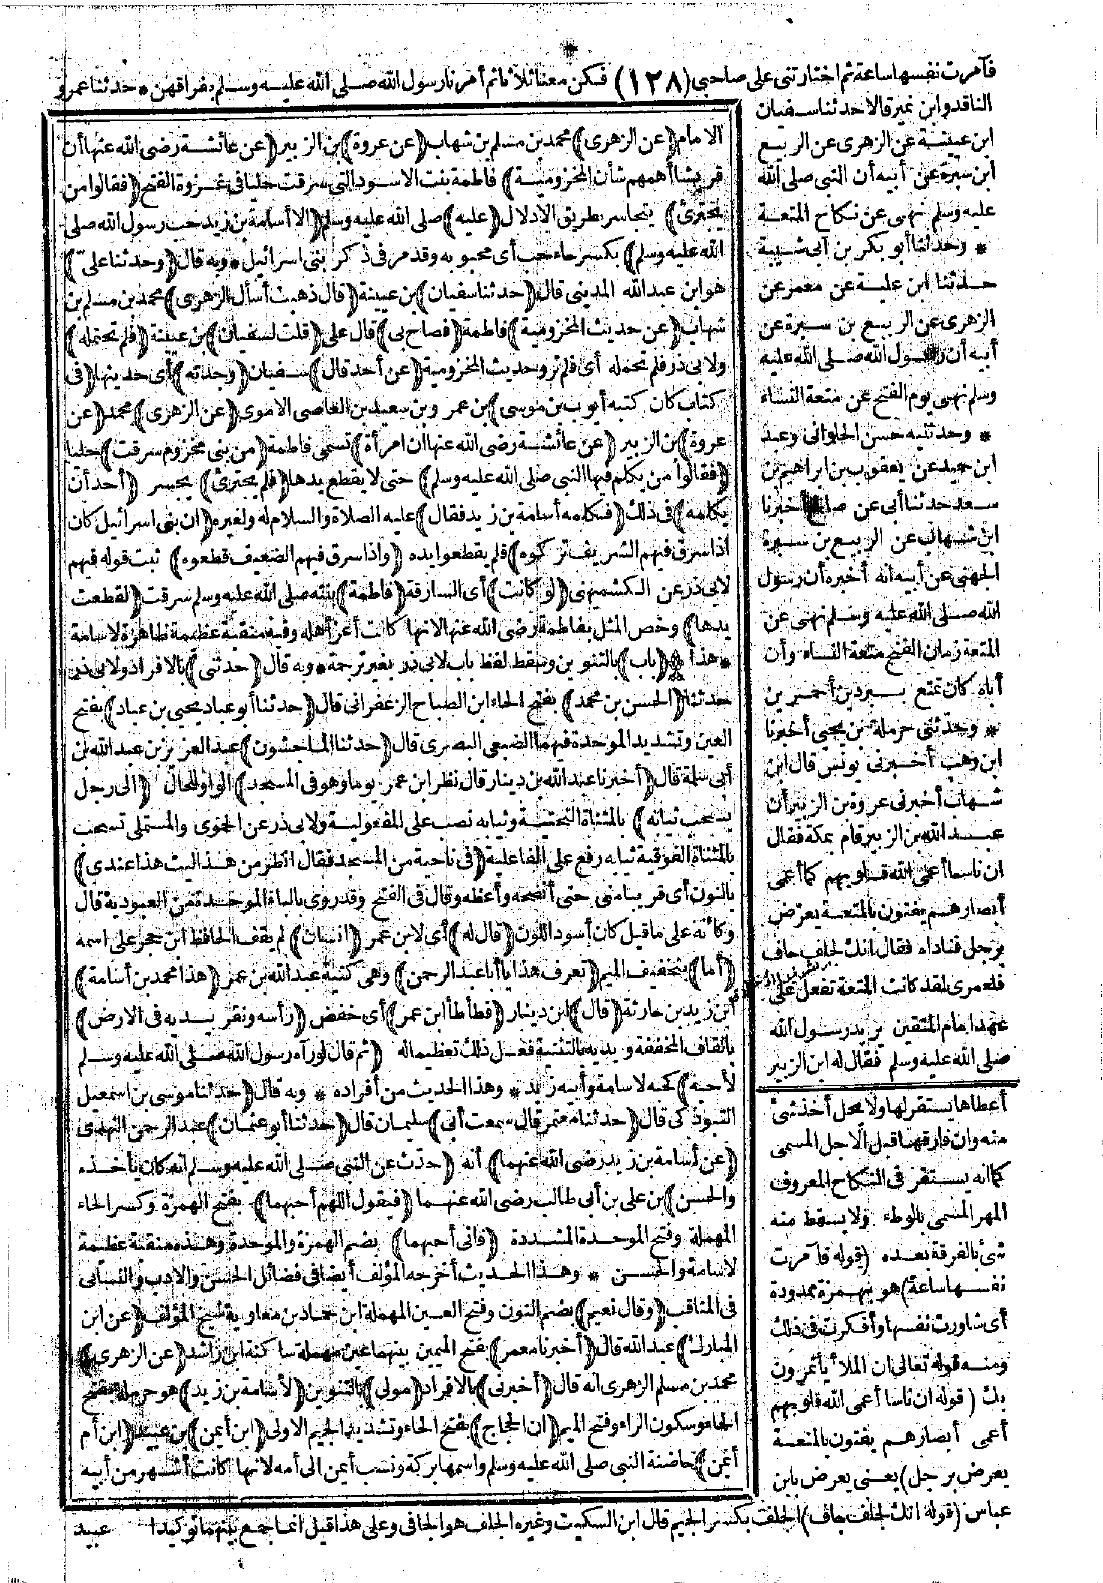 فآمرت نفسها ساعة ثم اختارتني على صاحبي (١٢٨) فكن معنا ثلاثا ثم أمرنا رسول الله صلى الله عليه وسلم بفراقهن * حدثنا عمرو
الناقد وابن نمير قالا حدثنا سفيان
ابن عيينة عن الزهرى عن الربيع
ابن سبرة عن أبيه أن النبي صلى الله
عليه وسلم نهى عن نكاح المتعة
* وحدثنا أبو بكر بن أبى شيبة
حدثنا ابن علية عن معمر عن
الزهرى عن الربيع بن سبرة عن
أبيه أن رسول الله صلى الله عليه
وسلم نهى يوم الفتح عن متعة النساء
* وحدثنيه حسن الحلوانى وعبد
ابن حميد عن يعقوب بن ابراهيم بن
سعد حدثنا أبى عن صالح أخبرنا
ابن شهاب عن الربيع بن سبرة
الجهنى عن أبيه أنه أخبره أن رسول
الله صلى الله عليه وسلم نهى عن
المتعة زمان الفتح متعة النساء وأن
أباه كان تمتع ببردين أحمرين
* وحدثنى حرملة بن يحيى أخبرنا
ابن وهب أخبرنى يونس قال ابن
شهاب أخبرنى عروة بن الزبير أن
عبد الله بن الزبير قام بمكة فقال
ان ناسا أعمى الله قلوبهم كما أعمى
أبصارهم يفتون بالمتعة يعرض
برجل فناداه فقال انك لجلف جاف
فلعمرى لقد كانت المتعة تفعل على
عهد امام المتقين يريد رسول الله
صلى الله عليه وسلم فقال له ابن الزبير
أعطاها يستقر لها ولا يحل أخذ شئ
منه وان فارقها قبل الأجل المسمى
كما انه يستقر فى النكاح المعروف
المهر المسمى بالوطء ولا يسقط منه
شئ بالفرقة بعده (قوله فآمرت
نفسها ساعة) هو بهمزة ممدودة
أى شاورت نفسها وأفكرت فى ذلك
ومنه قوله تعالى ان الملأ يأتمرون
بك (قوله ان ناسا أعمى الله قلوبهم
أعمى أبصارهم يفتون بالمتعة
يعرض برجل) يعنى يعرض بابن
الامام (عن الزهرى) محمد بن مسلم بن شهاب (عن عروة) بن الزبير (عن عائشة رضى الله عنها أن
قريشا أهمهم شأن المخزومية) فاطمة بنت الاسود التى سرقت حليا فى غزوة الفتح (فقالوا من
يجترئ) يتجاسر بطريق الادلال (عليه) صلى الله عليه وسلم (الا أسامة بن زيد حب رسول الله صلى
الله عليه وسلم) بكسر حاء حب أى محبوبه وقد مر فى ذكر بنى اسرائيل * وبه قال (وحدثنا على)
هو ابن عبد الله المدينى قال (حدثنا سفيان) بن عيينة (قال ذهبت أسأل الزهرى) محمد بن مسلم بن
شهاب (عن حديث المخزومية) فاطمة (فصاح بى) قال على (قلت لسفيان) بن عيينة (فلم تحتمله)
ولابى ذر فلم تحمله أى فلم ترو حديث المخزومية (عن أحد قال) سفيان (وجدته) أى حديثها (فى
كتاب كان كتبه أيوب بن موسى) بن عمرو بن سعيد بن العاصى الاموى (عن الزهرى) محمد (عن
عروة) بن الزبير (عن عائشة رضى الله عنها ان امرأة) تسمى فاطمة (من بنى مخزوم سرقت) حليا
(فقالوا من يكلم فيها النبى صلى الله عليه وسلم) حتى لا يقطع يدها (فلم يجترئ) يجسر (أحد أن
يكلمه) فى ذلك (فكلمه أسامة بن زيد فقال) عليه الصلاة والسلام له ولغيره (ان بنى اسرائيل كان
اذا سرق فيهم الشريف تركوه) فلم يقطعوا يده (واذا سرق فيهم الضعيف قطعوه) ثبت قوله فيهم
لابى ذر عن الكشميهنى (لو كانت) أى السارقة (فاطمة) بنته صلى الله عليه وسلم سرقت (لقطعت
يدها) وخص المثل بفاطمة رضى الله عنها لانها كانت أعز أهله وفيه منقبة عظيمة ظاهرة لاسامة
* هذا (باب) بالتنوين وسقط لفظ باب لابى ذر بغير ترجمة * وبه قال (حدثنى) بالافراد ولابى ذر
حدثنا (الحسن بن محمد) بفتح الحاء ابن الصباح الزعفرانى قال (حدثنا أبو عباد يحيى بن عباد) بفتح
العين وتشديد الموحدة فيهما الضبعى البصرى قال (حدثنا الماجشون) عبد العزيز بن عبد الله بن
أبى سلمة قال (أخبرنا عبد الله بن دينار قال نظر ابن عمر يوما وهو فى المسجد) الواو للحال (الى رجل
يسحب ثيابه) بالمثناة التحتية وثيابه نصب على المفعولية ولابى ذر عن الحموى والمستملى تسحب
بالمثناة الفوقية ثيابه رفع على الفاعلية (فى ناحية من المسجد فقال انظر من هذا ليت هذا عندى)
بالنون أى قريبا منى حتى أنصحه وأعظه وقال فى الفتح وقد روى بالباء الموحدة من العبودية قال
وكأنه على ما قيل كان أسود اللون (قال له) أى لابن عمر (انسان) لم يقف الحافظ ابن حجر على اسمه
(أما) بتخفيف الميم (تعرف هذا يا أبا عبد الرحمن) وهى كنية عبد الله بن عمر (هذا محمد بن أسامة)
ابن زيد بن حارثة (قال) ابن دينار (فطأطأ ابن عمر) أى خفض (رأسه ونقر بيديه فى الارض)
بالقاف المخففة ويديه بالتثنية فعل ذلك تعظيما له (ثم قال لو رآه رسول الله صلى الله عليه وسلم
لأحبه) كحبه لاسامة وأبيه زيد * وهذا الحديث من أفراده * وبه قال (حدثنا موسى بن اسمعيل
التبوذكى قال (حدثنا معتمر قال سمعت أبى) سليمان قال (حدثنا أبو عثمان) عبد الرحمن النهدى
(عن أسامة بن زيد رضى الله عنهما) أنه (حدث عن النبى صلى الله عليه وسلم انه كان يأخذه
والحسن) بن على بن أبى طالب رضى الله عنهما (فيقول اللهم أحبهما) بفتح الهمزة وكسر الحاء
المهملة وفتح الموحدة المشددة (فانى أحبهما) بضم الهمزة والموحدة وهذه منقبة عظيمة
لاسامة والحسن * وهذا الحديث أخرجه المؤلف أيضا فى فضائل الحسن والادب والنسائى
فى المناقب (وقال نعيم) بضم النون وفتح العين المهملة ابن حماد بن معاوية شيخ المؤلف (عن ابن
المبارك) عبد الله قال (أخبرنا معمر) بفتح الميمين بينهما عين مهملة ساكنة ابن راشد (عن الزهرى)
محمد بن مسلم الزهرى انه قال (أخبرنى) بالافراد (مولى) بالتنوين (لأسامة بن زيد) هو حرملة بفتح
الحاء وسكون الراء وفتح الميم (ان الحجاج) بفتح الحاء وتشديد الجيم الاولى (ابن أيمن) بن عبيد (ابن أم
أيمن) حاضنة النبى صلى الله عليه وسلم واسمها بركة ونسب أيمن الى أمه لانها كانت أشهر من أبيه
عباس (قوله انك لجلف جاف) الجلف بكسر الجيم قال ابن السكيت وغيره الجلف هو الجافى وعلى هذا قيل انما جمع بينهما توكيدا
عبيد